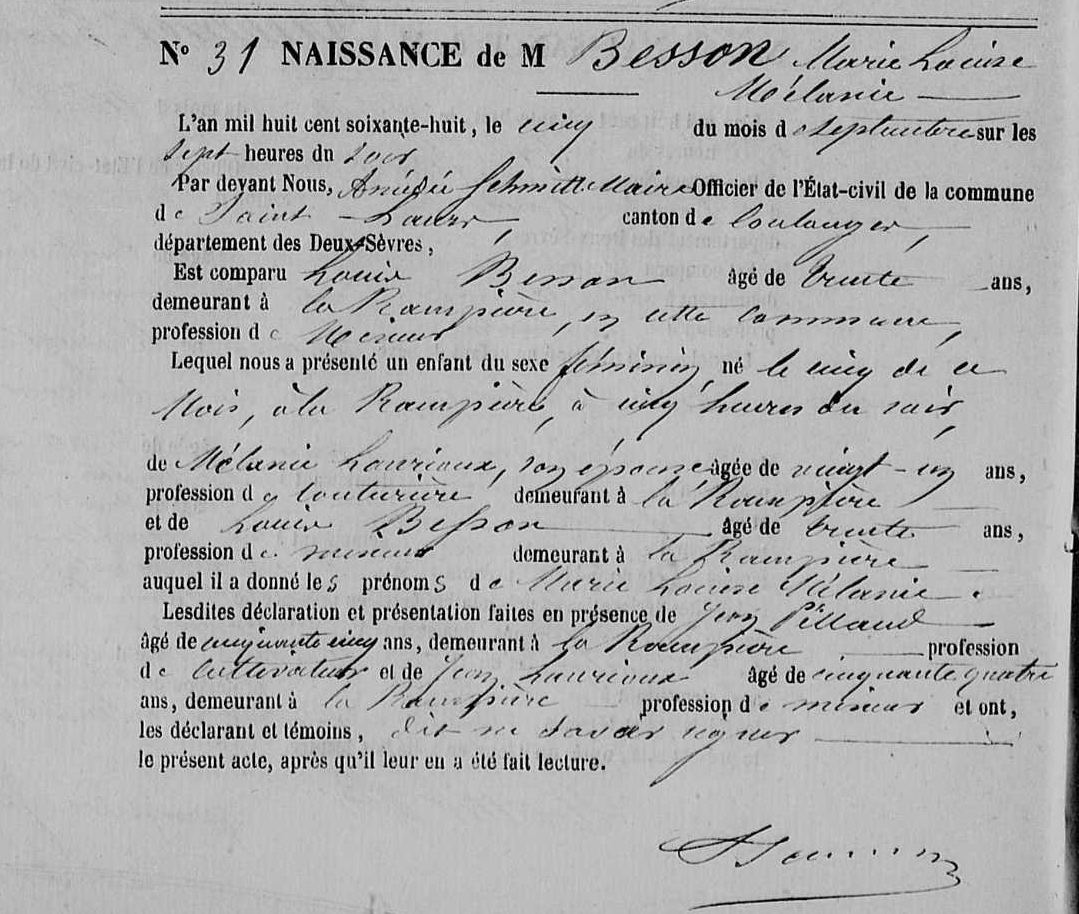 N° 31 NAISSANCE de M Besson Marie Louise
Mélanie
L'an mil huit cent soixante-huit, le cinq du mois de septembre sur les
sept heures du soir
Par devant Nous, Amédée Schmitt Maire Officier de l'État-civil de la commune
de Saint Laurs, canton de Coulonges,
département des Deux-Sèvres,
Est comparu Louis Besson âgé de trente ans,
demeurant à la Rampière, en cette commune,
profession de Mineur
Lequel nous a présenté un enfant du sexe féminin, né le cinq de ce
Mois, à la Rampière, à cinq heures du soir,
de Mélanie Lourioux, son épouse âgée de vingt-un ans,
profession de couturière demeurant à la Rampière
et de Louis Besson âgé de trente ans,
profession de mineur demeurant à la Rampière
auquel il a donné les prénoms de Marie Louise Mélanie.
Lesdites déclaration et présentation faites en présence de Jean Pillaud
âgé de cinquante cinq ans, demeurant à la Rampière profession
de cultivateur et de Jean Lourioux âgé de cinquante quatre
ans, demeurant à la Rampière profession de mineur et ont,
les déclarant et témoins, dit ne savoir signer
le présent acte, après qu'il leur en a été fait lecture.